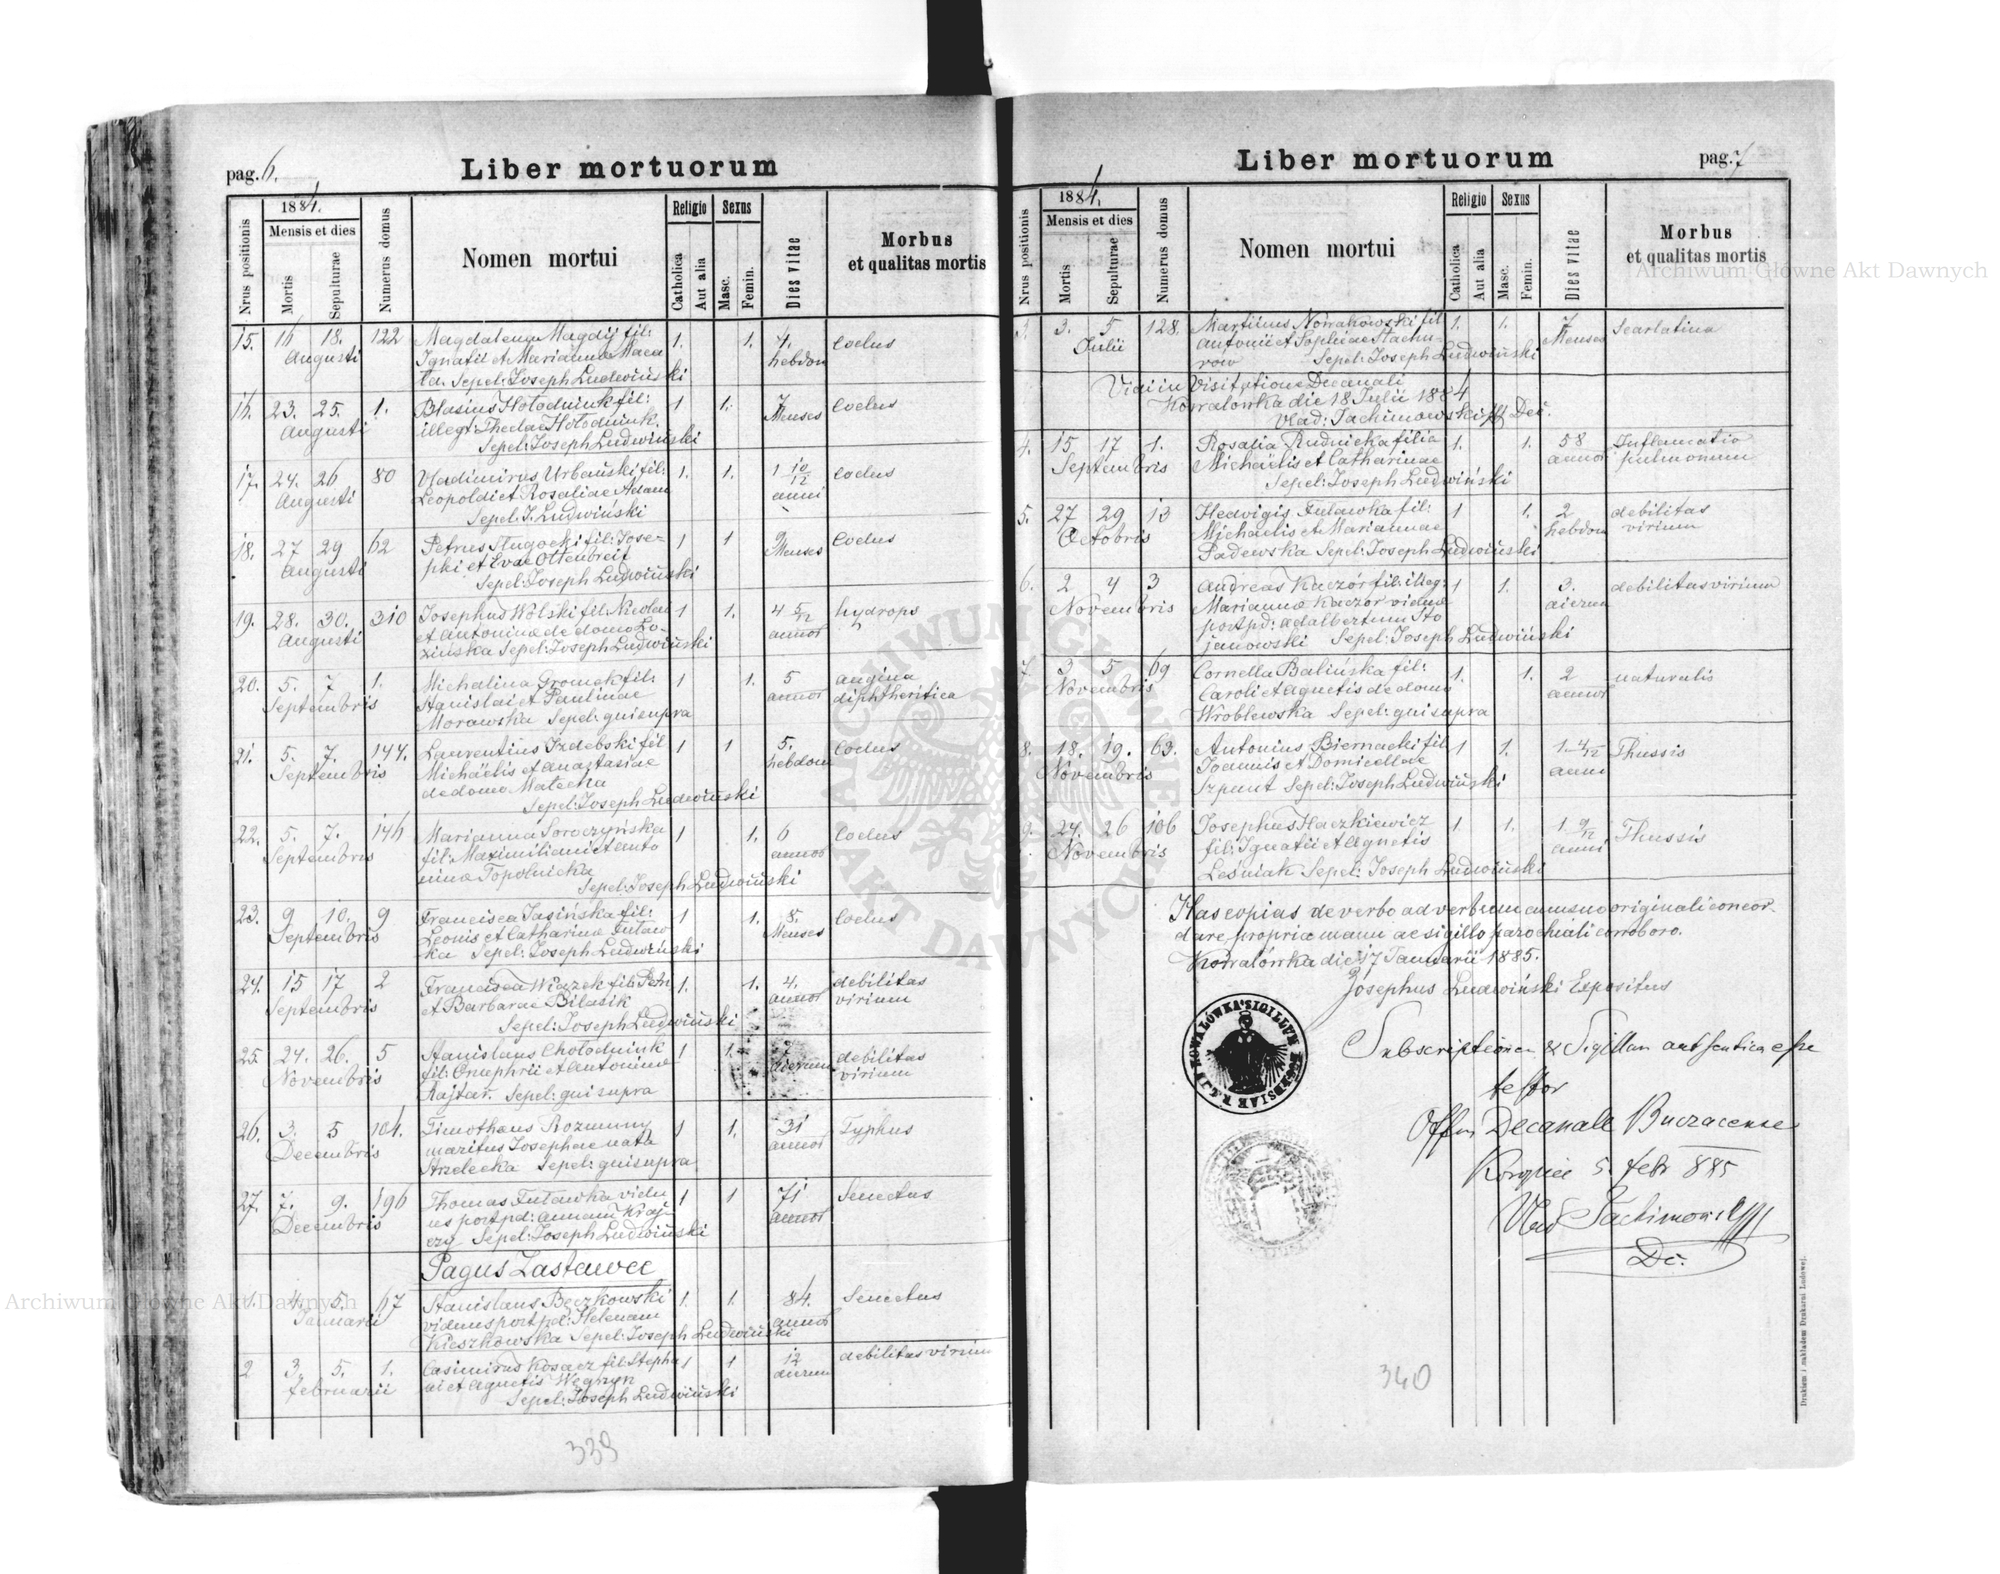 pag. 6.
Liber mortuorum
Nrus positionis
1884.
Mensis et dies
Mortis
Sepulturae
Numerus domus
Nomen mortui
Religio
Catholica
Aut alia
Sexus
Masc.
Femin.
Dies vitae
Morbus
et qualitas mortis
15. 16 18. 122 Magdalena Magdij fil: 1. 1. 4. Coclus
Augusti Ignatii et Marianna hebdom
Sepel: Joseph Ludwiński
16. 23. 25. 1. Blasius Hołodniuk fil: 1 1. 7 Coclus
Augusti illegt: Theclae Hołodniuk. Menses
Sepel: Joseph Ludwiński
17. 24. 26 80 Vladimirus Urbański fil: 1. 1. 1 10/12 Coclus
Augusti Leopoldi et Rosaliae Adam anni
Sepel: J. Ludwiński
18. 27 29 62 Petrus Sługocki fil: Jose= 1 1 9 Coclus
Augusti phi et Evae Ottenbreit Menses
Sepel: Joseph Ludwiński
19. 28. 30. 310 Josephus Wolski fil: Nicolai 1 1. 4 5/12 hydrops
Augusti et Antoninae de domo Lo- annor
zińska Sepel: Joseph Ludwiński
20. 5. 7 1. Michalina Gromek fil: 1 1. 5 angina
Septembris Stanislai et Paulinae annor diphtheritica
Morawska Sepel: qui supra
21. 5. 7. 144. Laurentius Izdebski fil 1 1 5. Coclus
Septembris Michaëlis et Anastasiae hebdom
de domo Matecka
Sepel: Joseph Ludwiński
22. 5. 7. 146 Marianna Soroczyńska 1 1. 6 Coclus
Septembris fil: Maximiliani et Anto annor
ninae Topolnicka
Sepel: Joseph Ludwiński
23. 9 10. 9 Francisca Jasińska fil: 1 1. 8. Coclus
Septembris Leonis et Catharina Futaw Menses
ka Sepel: Joseph Ludwiński
24. 15 17 2 Francisca Wiązek fil: Petri 1. 1. 4. debilitas
Septembris et Barbarae Bilasik annor virium
Sepel: Joseph Ludwiński
25. 24. 26. 5 Stanislaus Chołodniuk 1 1. 7 debilitas
Novembris fil: Onuphrii et Antoninae dierum virium
Rajtar. Sepel: qui supra
26. 3. 5 104. Timotheus Rozmuny 1 1. 31 Typhus
Decembris maritus Josephae nata annor
Strzelecka Sepel: qui supra
27. 7. 9. 196 Thomas Futawka vidu 1 1 71 Senectus
Decembris us post pd: Annam Kraj- annor
czy Sepel: Joseph Ludwiński
Pagus Zastawce
1. 4. 5. 67 Stanislaus Bęczkowski 1. 1. 84. Senectus
Januarii viduus post pd: Helenam annor
Kleszkowska Sepel: Joseph Ludwiński
2 3. 5. 1. Casimirus Kosacz fil: Stepha 1 1 12 debilitas virium
februarii ni et Agnetis Węgrzyn dierum
Sepel: Joseph Ludwiński
339
Liber mortuorum
pag. 7
Nrus positionis
1884.
Mensis et dies
Mortis
Sepulturae
Numerus domus
Nomen mortui
Religio
Catholica
Aut alia
Sexus
Masc.
Femin.
Dies vitae
Morbus
et qualitas mortis
3. 3. 5 128. Martinus Nowakowski fil 1. 1. 7 Scarlatina
Julii Antonii et Sophiae Stachu- Menses
rów Sepel: Joseph Ludwiński
Vidi in Visitatione Decanali
Kowalówka die 18 Julii 1884
Vlad: Tachimowski Dec.
4. 15 17 1. Rosalia Rudnicka filia 1. 1. 58 Inflamatio
Septembris Michaëlis et Catharinae annor pulmonum
Sepel: Joseph Ludwiński
5. 27 29 13 Hedvigis Futawka fil: 1 1. 2 debilitas
Octobris Michaëlis et Mariannae hebdom virium
Padewska Sepel: Joseph Ludwiński
6. 2 4 3 Andreas Kaczór fil: illeg: 1 1. 3. debilitas virium
Novembris Marianna Kaczor vidua dierum
post pd: Adalbertum Sto
janowski Sepel: Joseph Ludwiński
7. 3 5 69 Cornella Balińska fil: 1. 1. 2 naturalis
Novembris Caroli et Agnetis de domo annor
Wroblewska Sepel: qui supra
8. 18. 19. 63. Antonius Biernacki fil 1 1. 1. 4/12 Thussis
Novembris Joannis et Domicellae anni
Szpunt Sepel: Joseph Ludwiński
9. 24. 26 106 Josephus Haczkiewicz 1 1. 1 9/12 Thussis
Novembris fil: Ignatii et Agnetis anni
Leśniak Sepel: Joseph Ludwiński
Has copias de verbo ad verbum cum suo originali concor-
dare propria manu ac sigillo parochiali corroboro.
Kowalówka die 17 Januarii 1885.
Josephus Ludwiński Expositus
Subscriptionem & Sigillum authentica esse
testor
Offm Decanale Buczacense
5. febr 885
Vlad Tachimowski
Dc.
340
Drukiem i nakładem Drukarni Ludowej.
Archiwum Główne Akt Dawnych
Archiwum Główne Akt Dawnych
ARCHIWUM GŁÓWNE AKT DAWNYCH